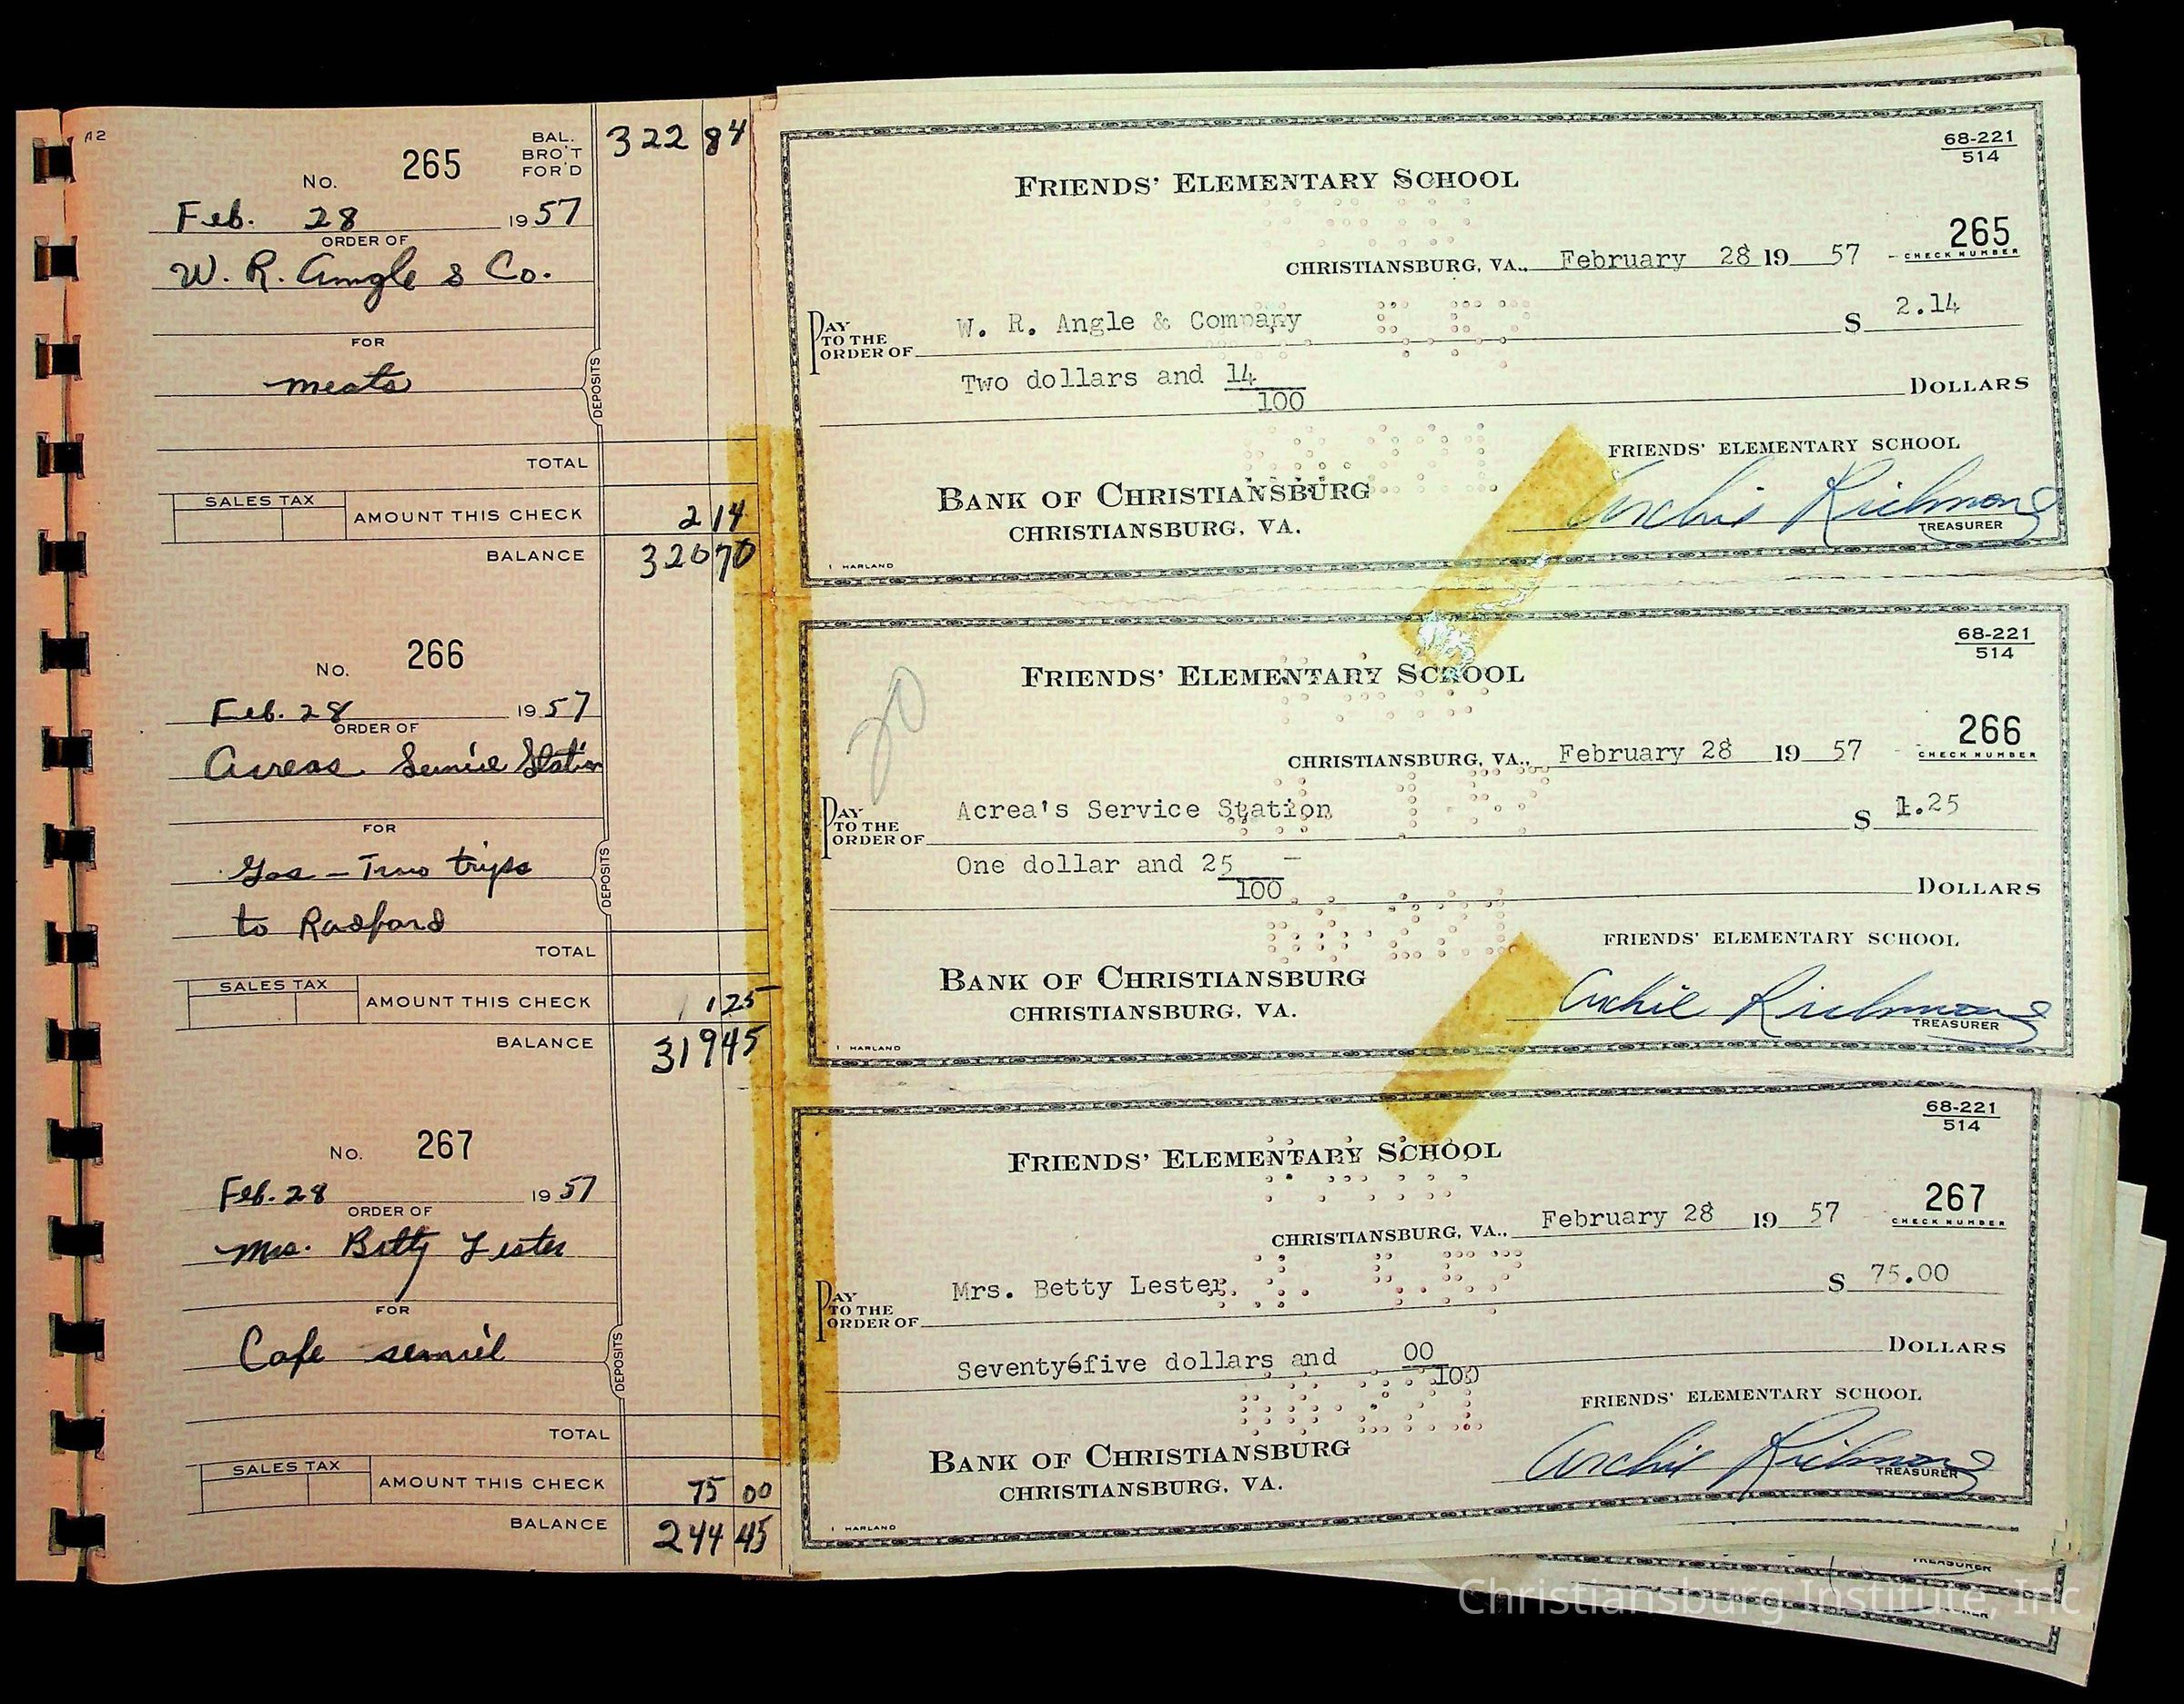 A2
No. 265
BAL. BRO'T FOR'D 322 84
Feb. 28 1957
ORDER OF
W. R. Angle & Co.
FOR
meats
DEPOSITS
TOTAL
SALES TAX
AMOUNT THIS CHECK 2 14
BALANCE 320 70
No. 266
Feb. 28 1957
ORDER OF
Acreas Service Station
FOR
Gas - Two trips
to Radford
DEPOSITS
TOTAL
SALES TAX
AMOUNT THIS CHECK 1 25
BALANCE 319 45
No. 267
Feb. 28 1957
ORDER OF
Mrs. Betty Lester
FOR
Cafe servies
DEPOSITS
TOTAL
SALES TAX
AMOUNT THIS CHECK 75 00
BALANCE 244 45
68-221
514
FRIENDS' ELEMENTARY SCHOOL
265
CHRISTIANSBURG, VA., February 28 19 57 CHECK NUMBER
PAY TO THE ORDER OF W. R. Angle & Company $ 2.14
Two dollars and 14/100 DOLLARS
FRIENDS' ELEMENTARY SCHOOL
BANK OF CHRISTIANSBURG
CHRISTIANSBURG, VA.
Archie Richmond
TREASURER
1 HARLAND
68-221
514
FRIENDS' ELEMENTARY SCHOOL
20
266
CHRISTIANSBURG, VA., February 28 19 57 CHECK NUMBER
PAY TO THE ORDER OF Acrea's Service Station $ 1.25
One dollar and 25/100 DOLLARS
FRIENDS' ELEMENTARY SCHOOL
BANK OF CHRISTIANSBURG
CHRISTIANSBURG, VA.
Archie Richmond
TREASURER
1 HARLAND
68-221
514
FRIENDS' ELEMENTARY SCHOOL
267
CHRISTIANSBURG, VA., February 28 19 57 CHECK NUMBER
PAY TO THE ORDER OF Mrs. Betty Lester $ 75.00
Seventy6five dollars and 00/100 DOLLARS
FRIENDS' ELEMENTARY SCHOOL
BANK OF CHRISTIANSBURG
CHRISTIANSBURG, VA.
Archie Richmond
TREASURER
1 HARLAND
TREASURER
Christiansburg Institute, Inc